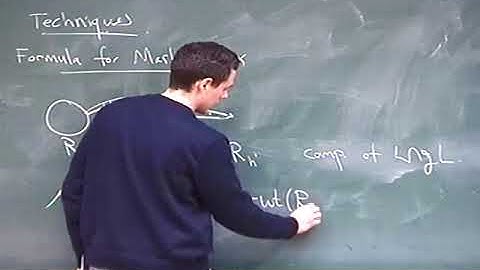 Techniques.
Formula for
R R_h' comp. of L∩gL.
wt(R